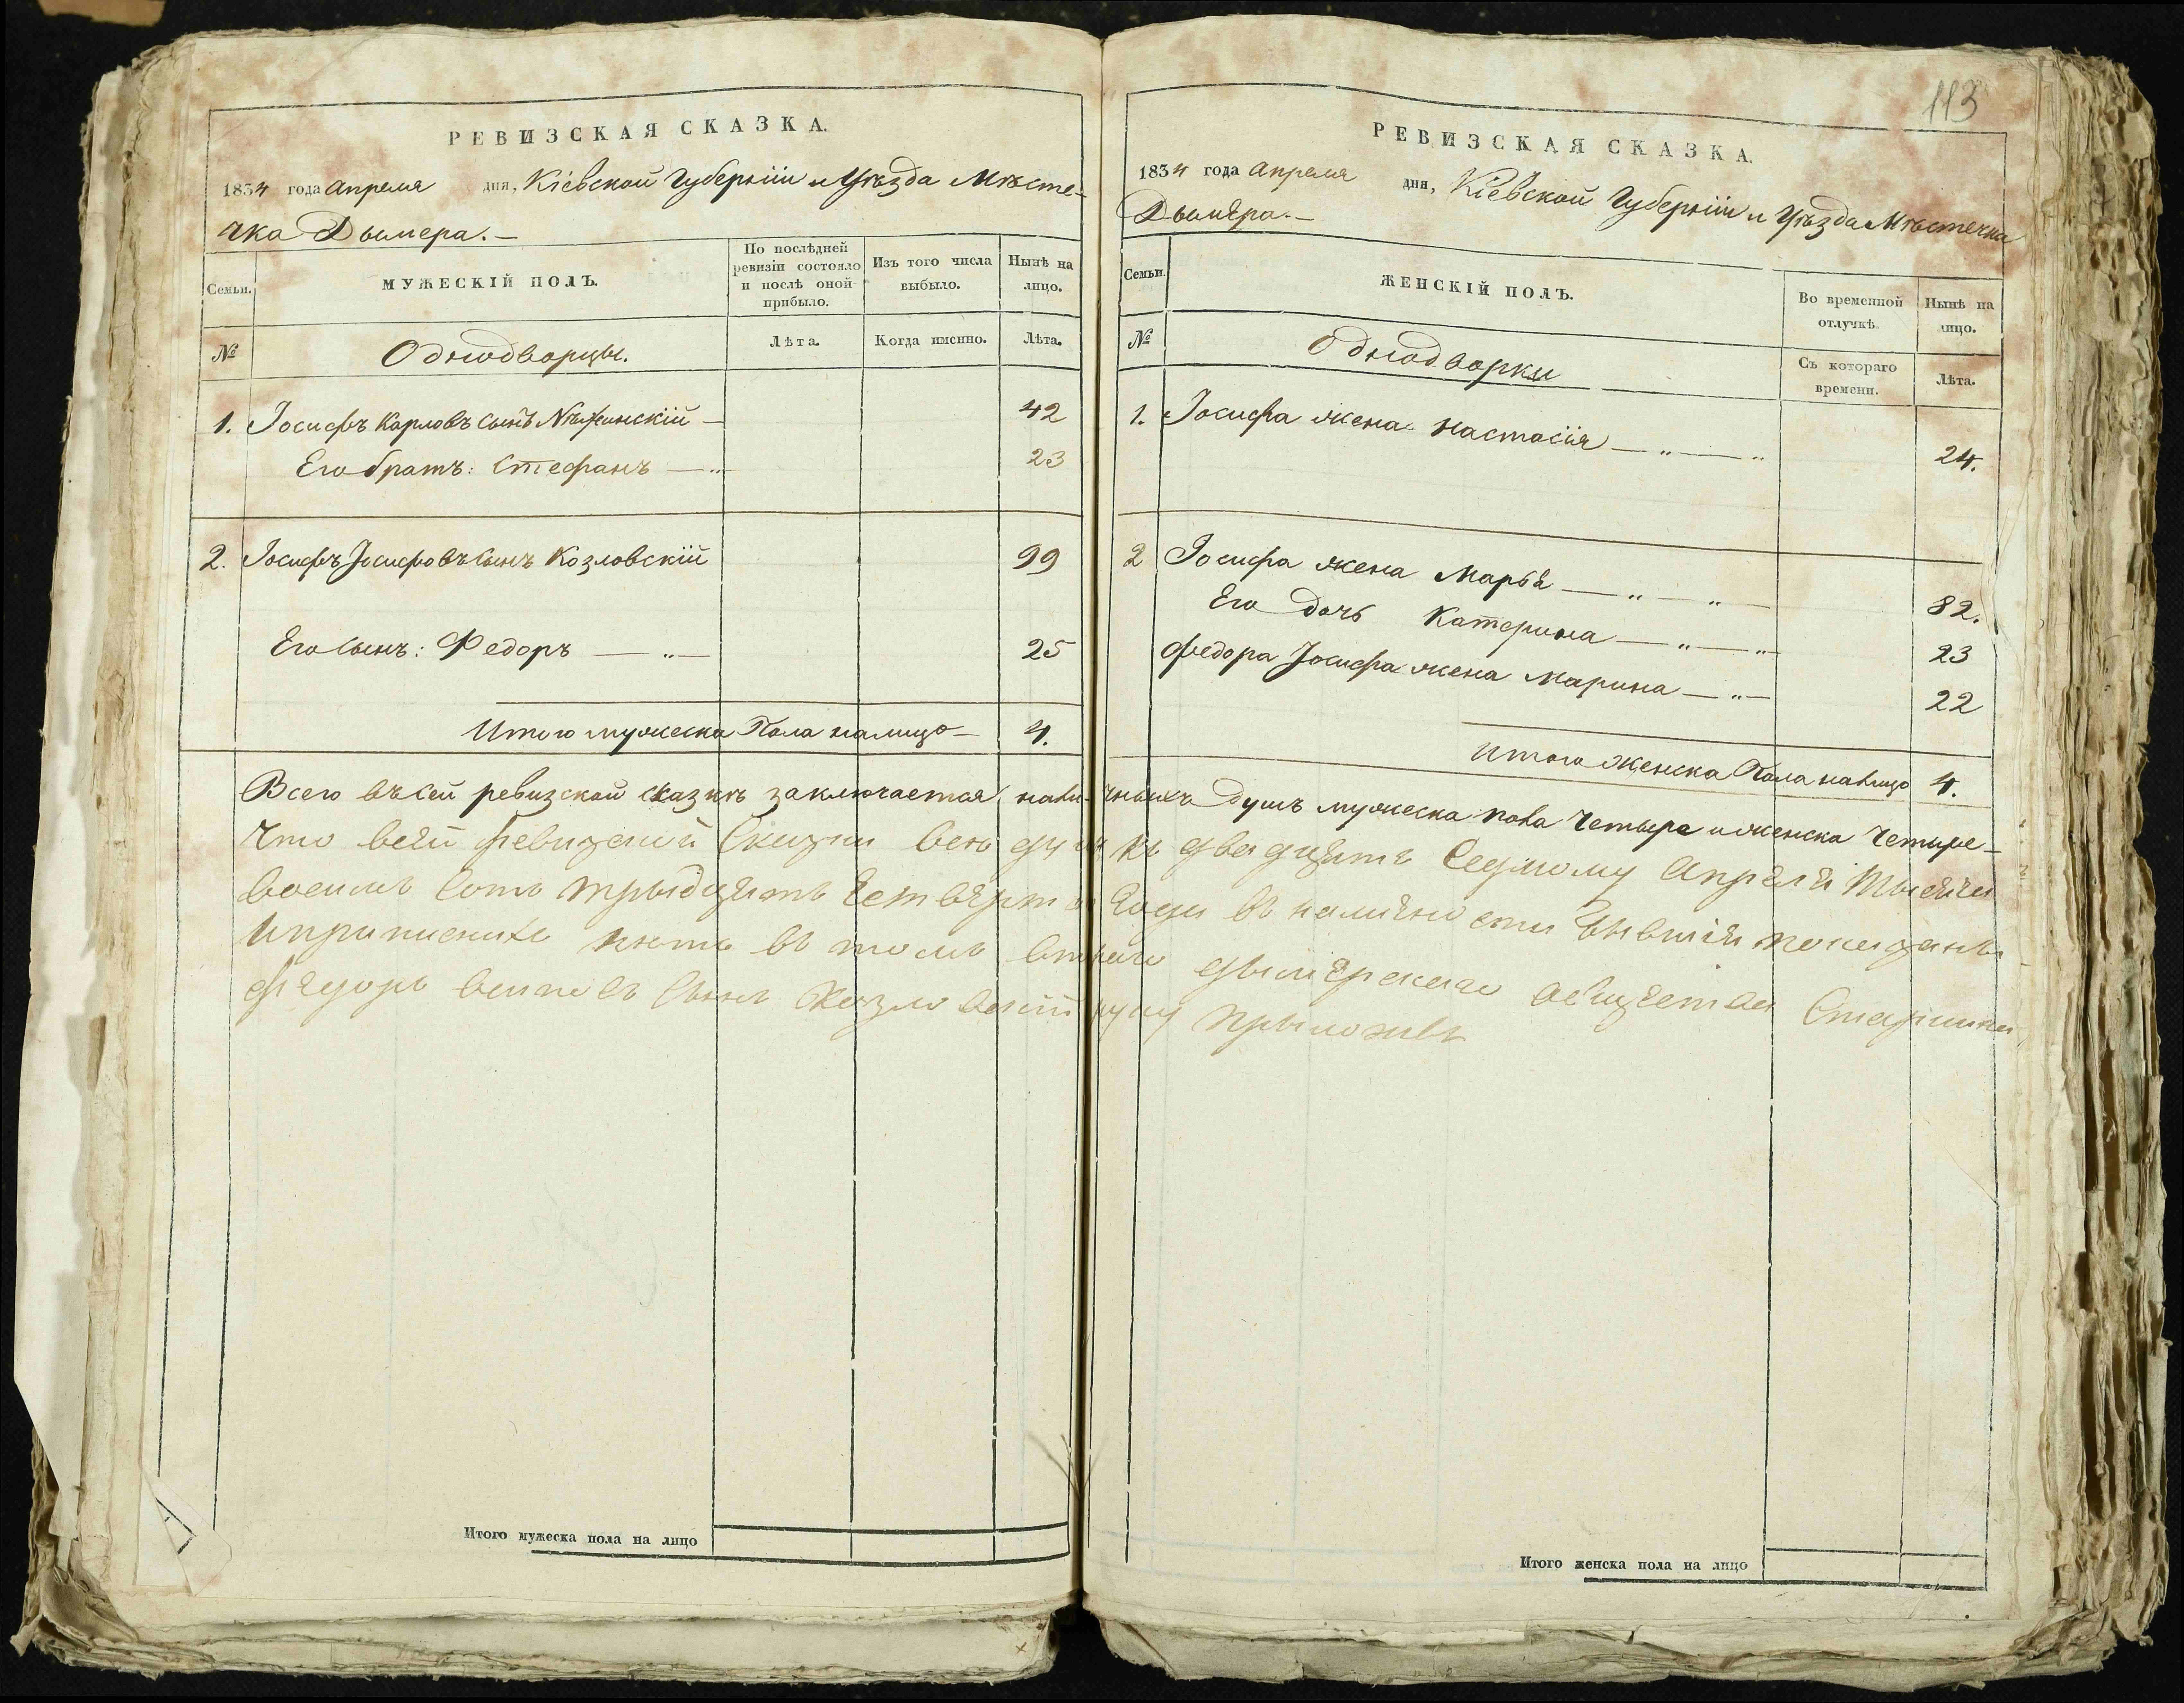 РЕВИЗСКАЯ СКАЗКА.
1834 года апреля дня, Кіевской Губерніи и Уѣзда Мѣсте-
чка Дымера.—
Семьи.
МУЖЕСКІЙ ПОЛЪ.
По послѣдней ревизіи состояло и послѣ оной прибыло.
Изъ того числа выбыло.
Нынѣ на лицо.
№
Однодворцы.
Лѣта.
Когда именно.
Лѣта.
1. Іосифъ Карловъ сынъ Нѣжинскій — 42
Его братъ: Стефанъ — „ — 23
2. Іосифъ Іосифовъ сынъ Козловскій 99
Его сынъ: Федоръ — „ — 25
Итого мужеска Пола налицо — 4.
113
РЕВИЗСКАЯ СКАЗКА.
1834 года апреля дня, Кіевской Губерніи и Уѣзда Мѣстечка
Дымера.—
Семьи.
ЖЕНСКІЙ ПОЛЪ.
Во временной отлучкѣ.
Нынѣ на лицо.
№
Однодворки
Съ котораго времени.
Лѣта.
1. Іосифа жена Настасія — „ — „ 24.
2 Іосифа жена Марья — „ — „ — 82.
Его дочь Катерина — „ — „ 23
Федора Іосифа жена Марина — „ — 22
Итого Женска Пола налицо 4.
Всего въ сей ревизской сказкѣ заключается наличныхъ душъ мужеска пола Четыре и женска Четыре —
Что всей ревизской Скази всѣ душ къ двадцять Седмому Апреля Тысяча
восимъ Сотъ трыдцять Четвертого Года въ наличности
въ томъ дымерскаго общества Старшина
Федоръ сынъ Козловскій руку прыложивъ
Итого мужеска пола на лицо
Итого женска пола на лицо